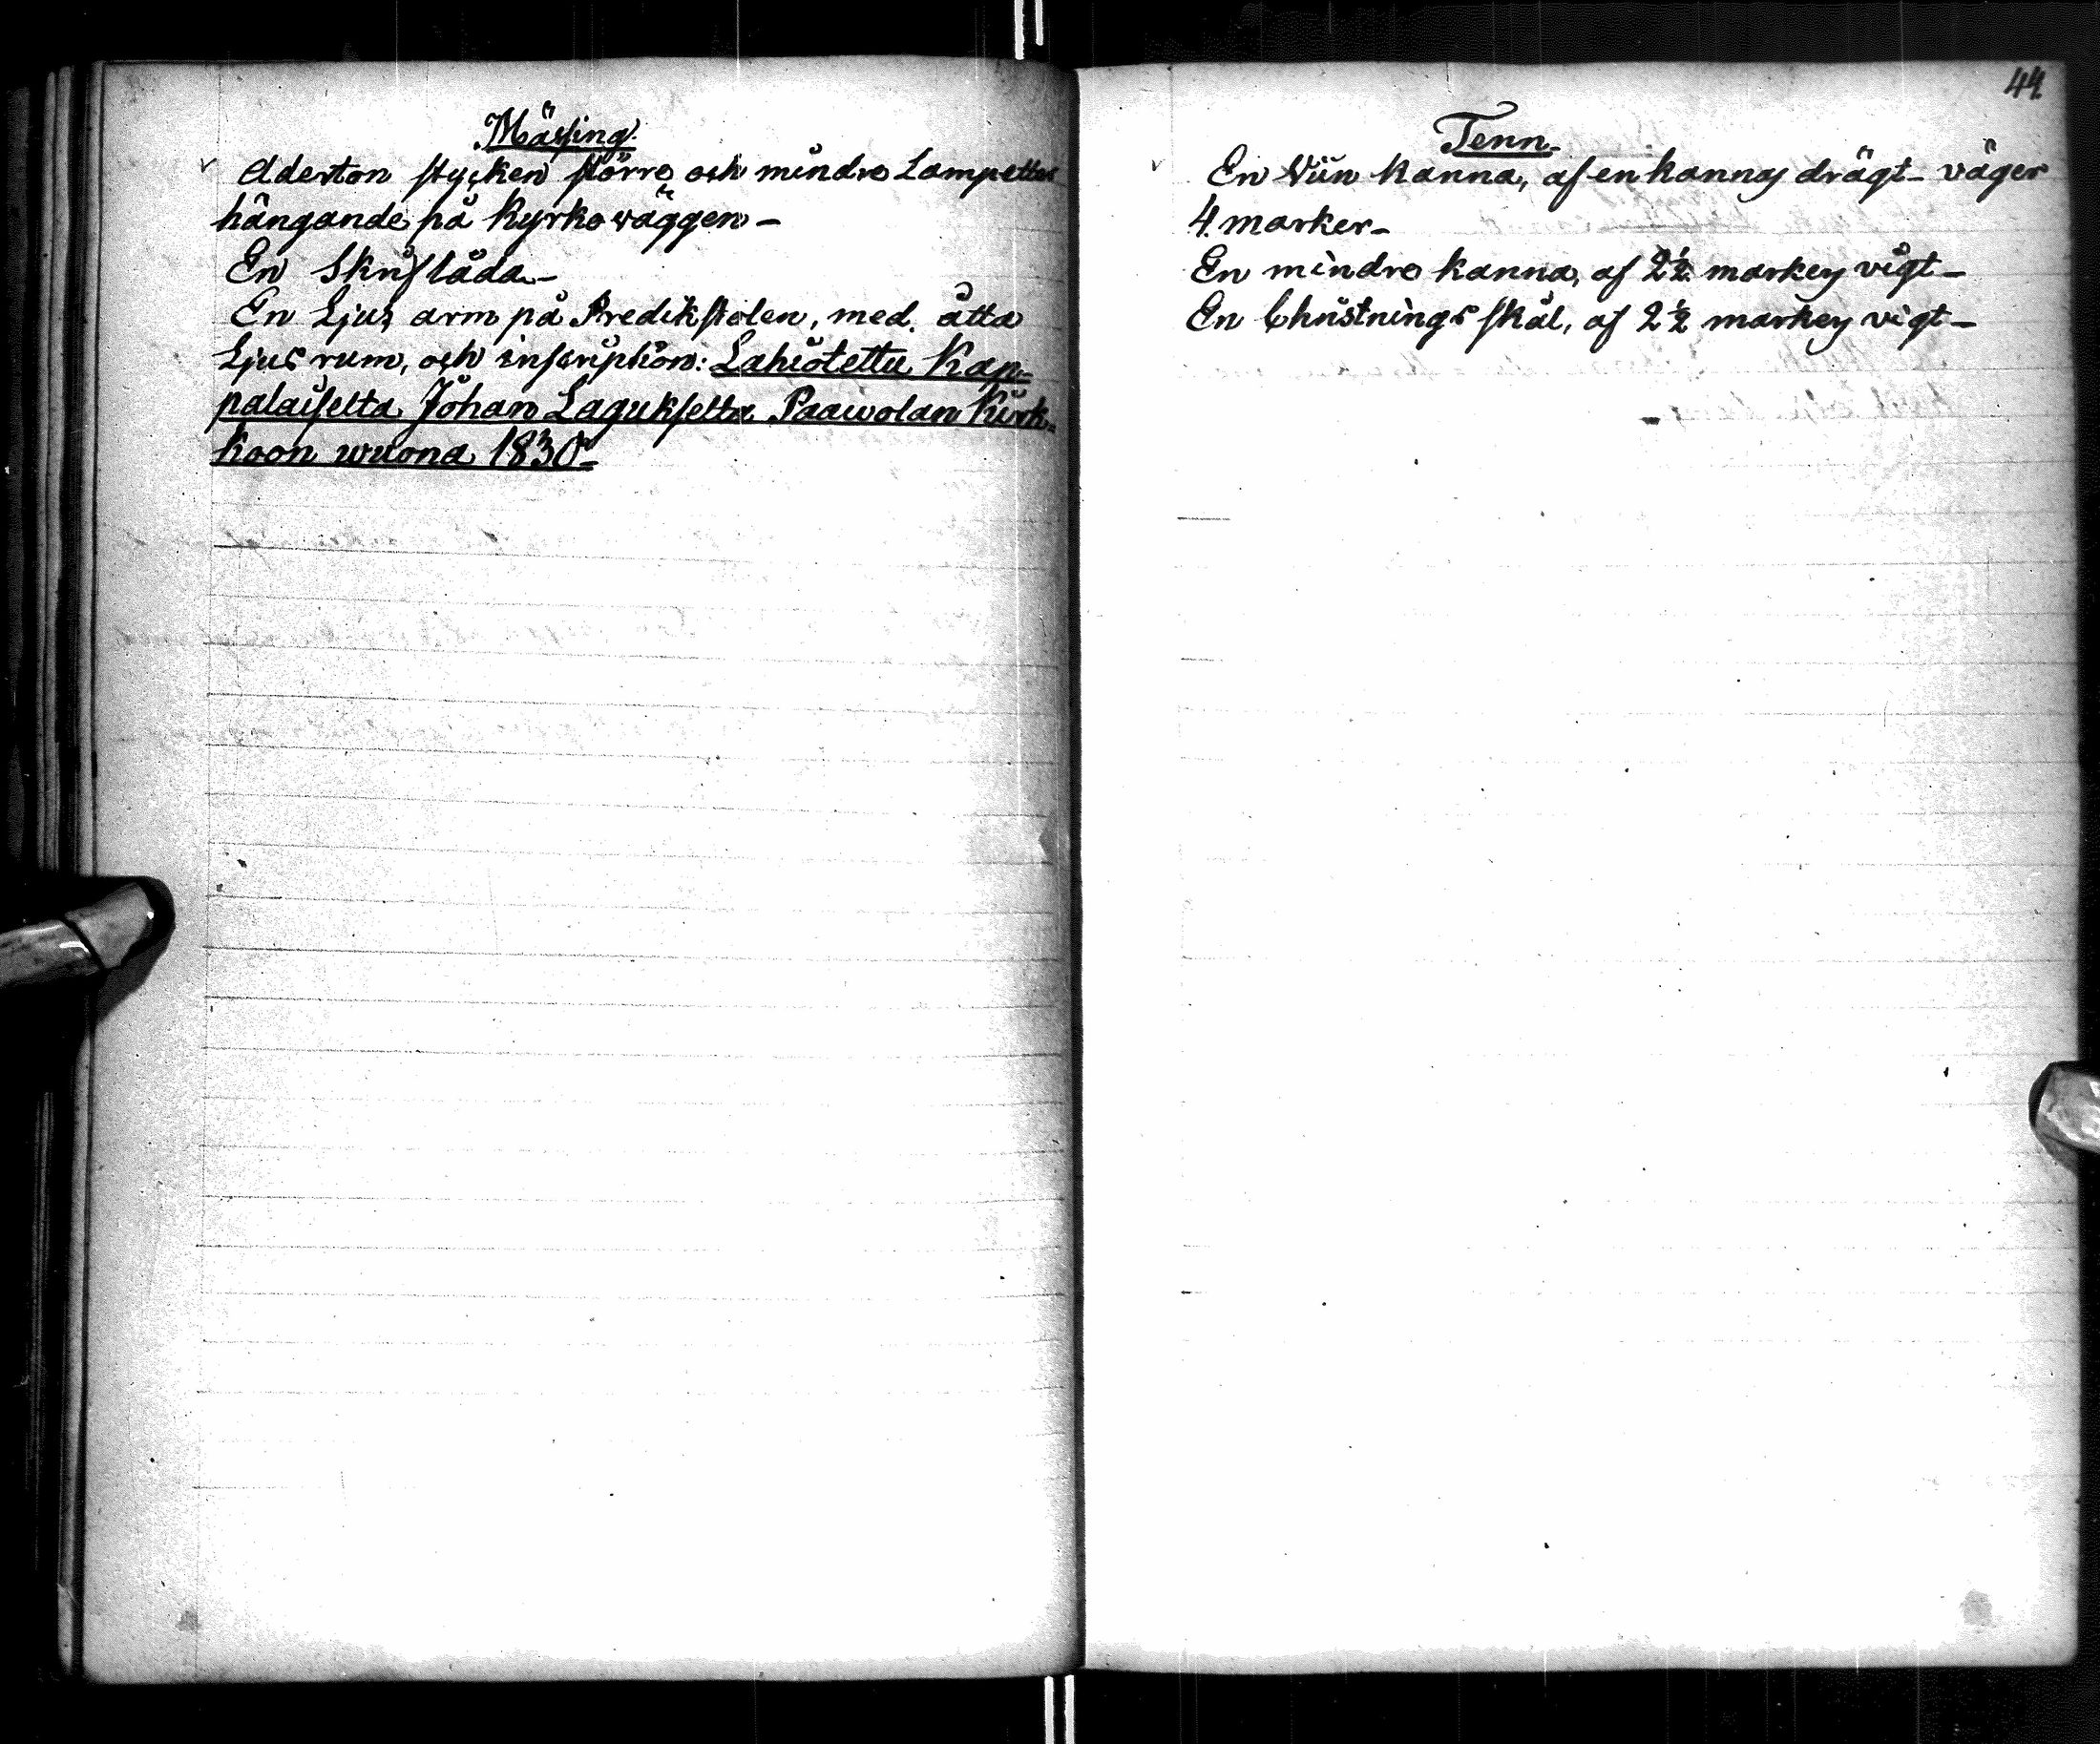 Mässing.
Aderton stycken större och mindre Lampetter
hängande på Kyrkowäggen –
En Skrufláda –
En Ljus arm på Predikstolen, med åtta
Ljus rum, och inscription: Lahiotettu Kap-
palaiselta Johan Lagukselta Paawolan Kirk-
koon wuona 1830 –
44.
Tenn.
En Viin kanna, af en kannas drägt – väger
4. marker –
En mindre kanna, af 2 1/2 markers vigt –
En Christnings skål, af 2 1/2 markers vigt –